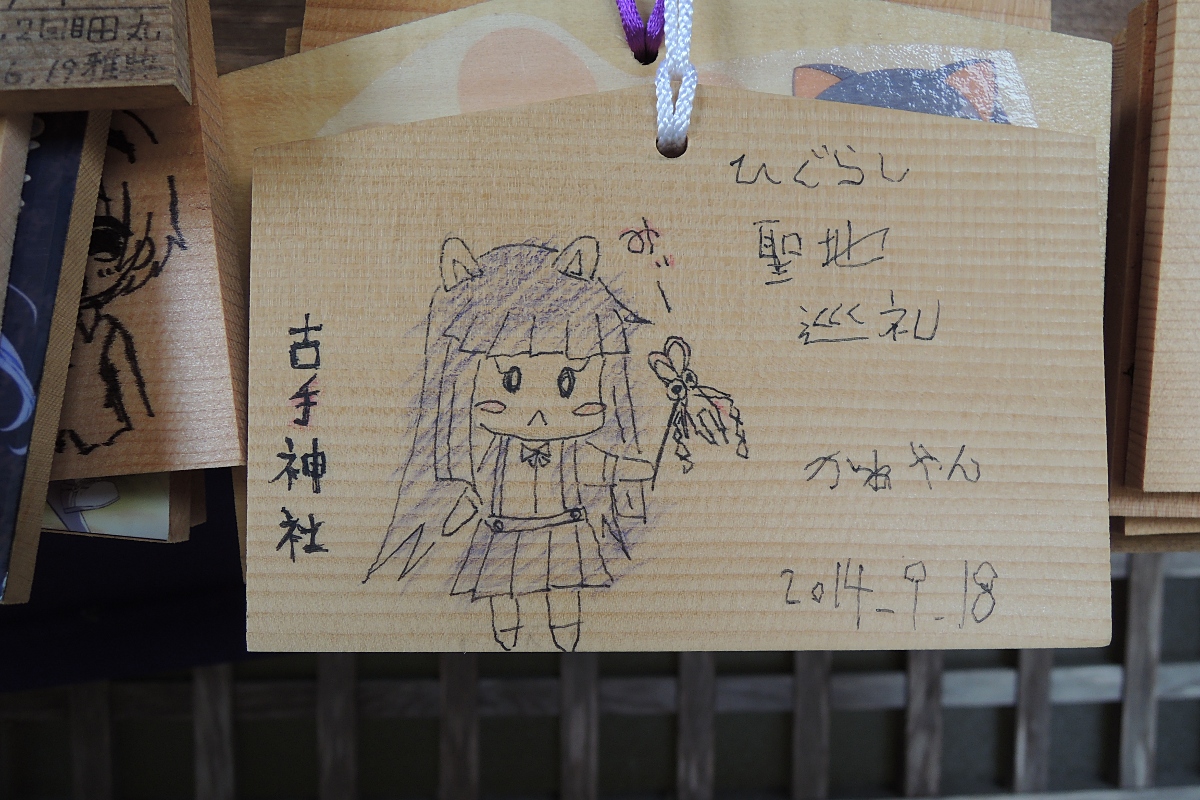 .2回目田丸
6.19雅典
ひぐらし
聖地
巡礼
かねやん
2014-9-18
古手神社